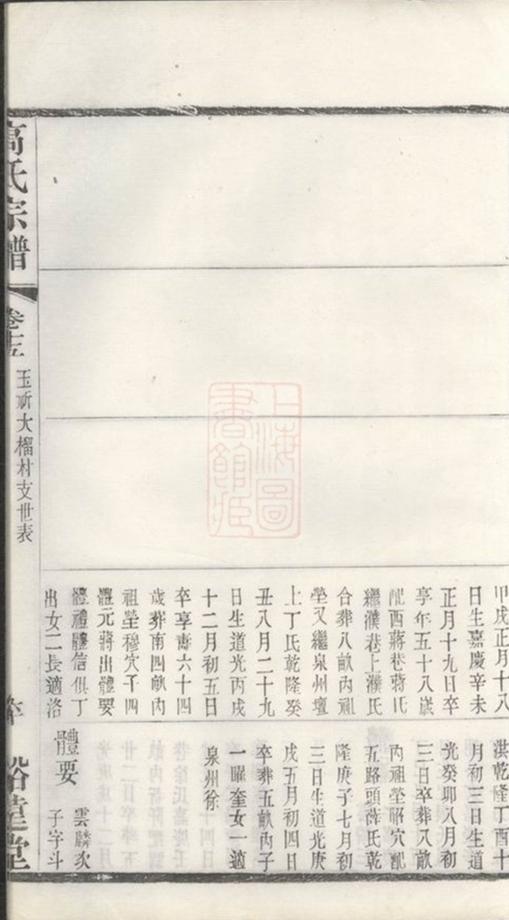 甲戌正月十八
日生嘉慶辛未
正月十九日卒
享年五十八歲
配西蔣巷蔣氏
繼濮巷上濮氏
合葬八畝內祖
塋又繼泉州壇
上丁氏乾隆癸
丑八月二十九
日生道光丙戌
十二月初五日
卒享壽六十四
歲葬南四畝內
祖塋穆穴子四
體元蔣出體要
體禮體信俱丁
出女二長適洛
淇乾隆丁酉十
月初三日生道
光癸卯八月初
三日卒葬八畝
內祖塋昭穴配
五路頭薛氏乾
隆庚子七月初
三日生道光庚
戌五月初四日
卒葬五畝內子
一曜奎女一適
泉州徐
體要
雲麟次
子字斗
高氏宗譜
卷
玉祈大榴村支世表
上海圖
書館藏